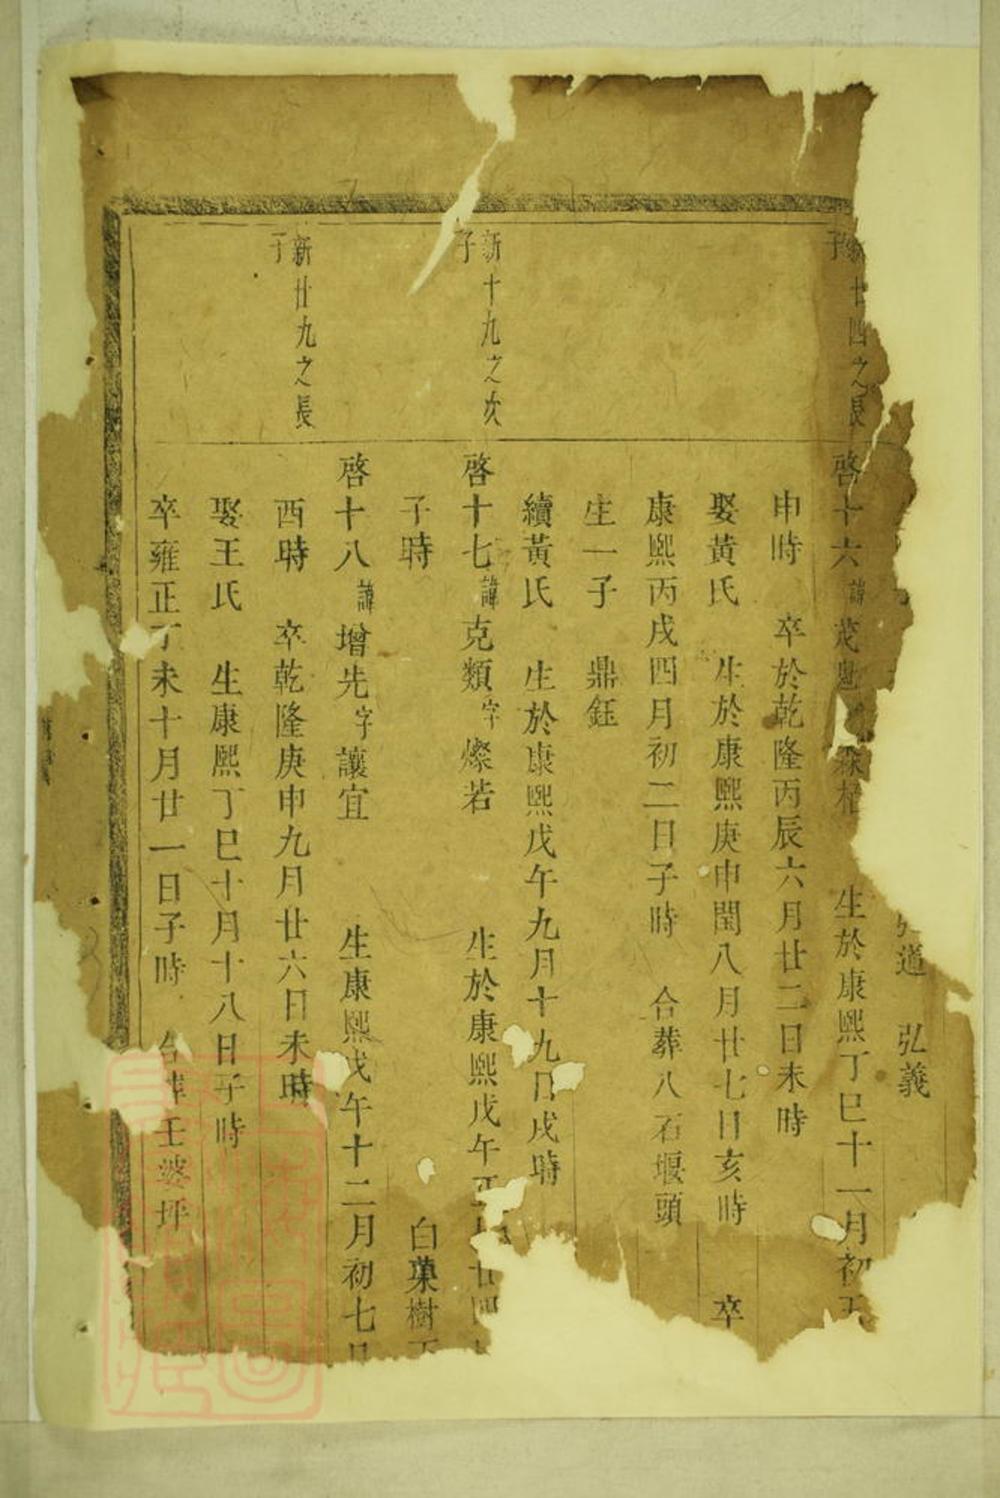 道 弘義
新十四之長
子
啓十六諱茂 生於康熙丁巳十一月初五
申時 卒於乾隆丙辰六月廿二日未時
娶黃氏 生於康熙庚申閏八月廿七日亥時 卒
康熙丙戌四月初二日子時 合葬八石堰頭
生一子 鼎鈺
續黃氏 生於康熙戊午九月十九日戌時
新十九之次
子
啓十七諱克類字燦若 生於康熙戊午正月廿四
子時 白菓樹下
新廿九之長
子
啓十八諱增先字讓宜 生康熙戊午十二月初七日
酉時 卒乾隆庚申九月廿六日未時
娶王氏 生康熙丁巳十月十八日子時
卒雍正丁未十月廿一日子時 合葬王婆坪